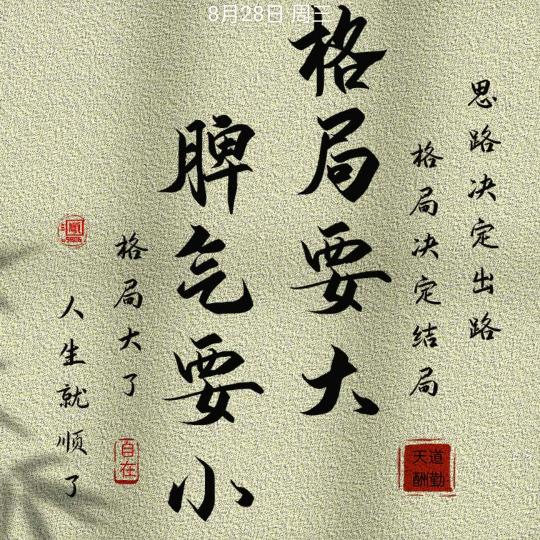 8月28日 周三
思路决定出路
格局决定结局
天道
酬勤
格局要大
脾气要小
格局大了
自在
人生就顺了